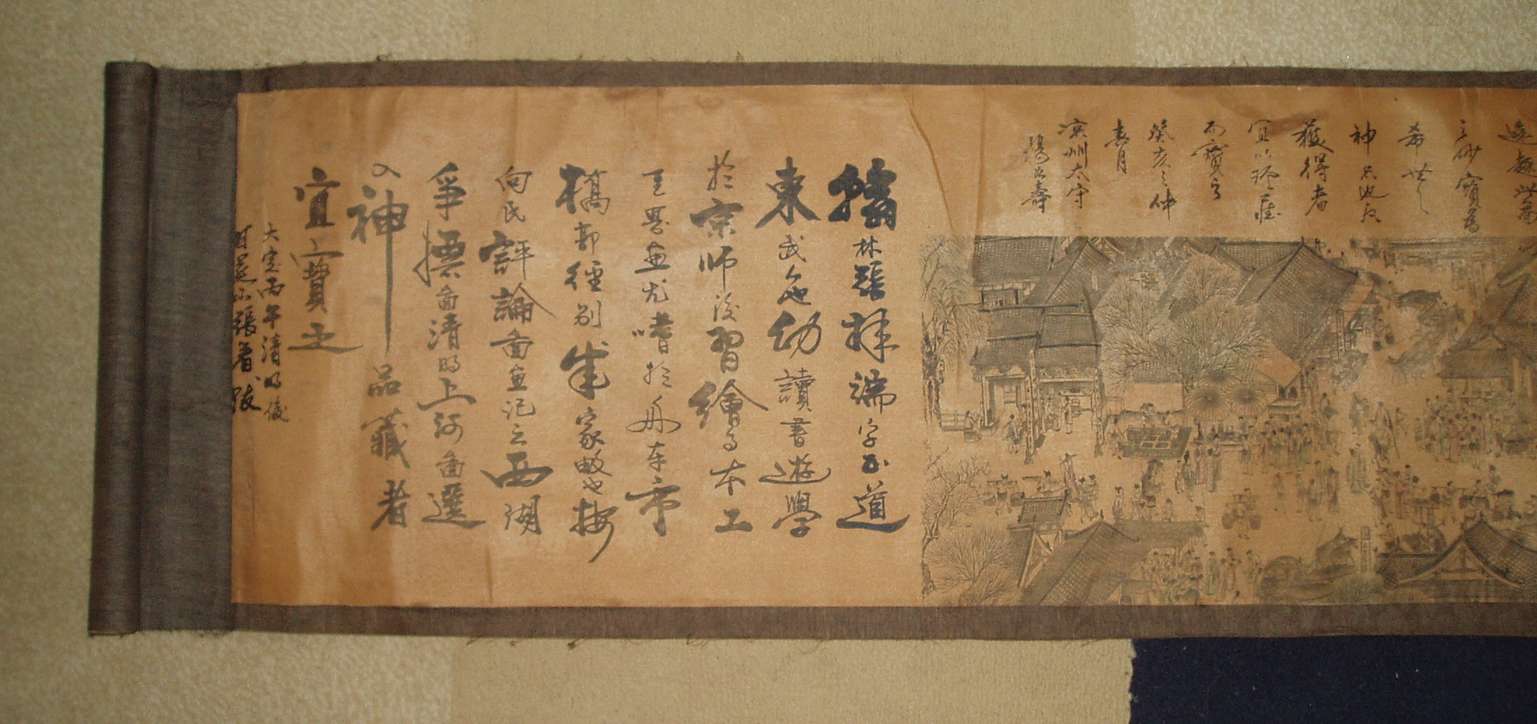 希世之
獲得者
宜以珍藏
而寶之
癸亥之仲
春月
州太守
壽
翰林張擇端字正道
東武人也幼讀書遊學
於京師後習繪事本工
其界畫尤嗜於舟車市
橋郭徑別成家數也按
向氏評論圖畫記云西湖
爭標圖清明上河圖選
入神品藏者
宜寶之
大定丙午清明後
日燕山張著跋